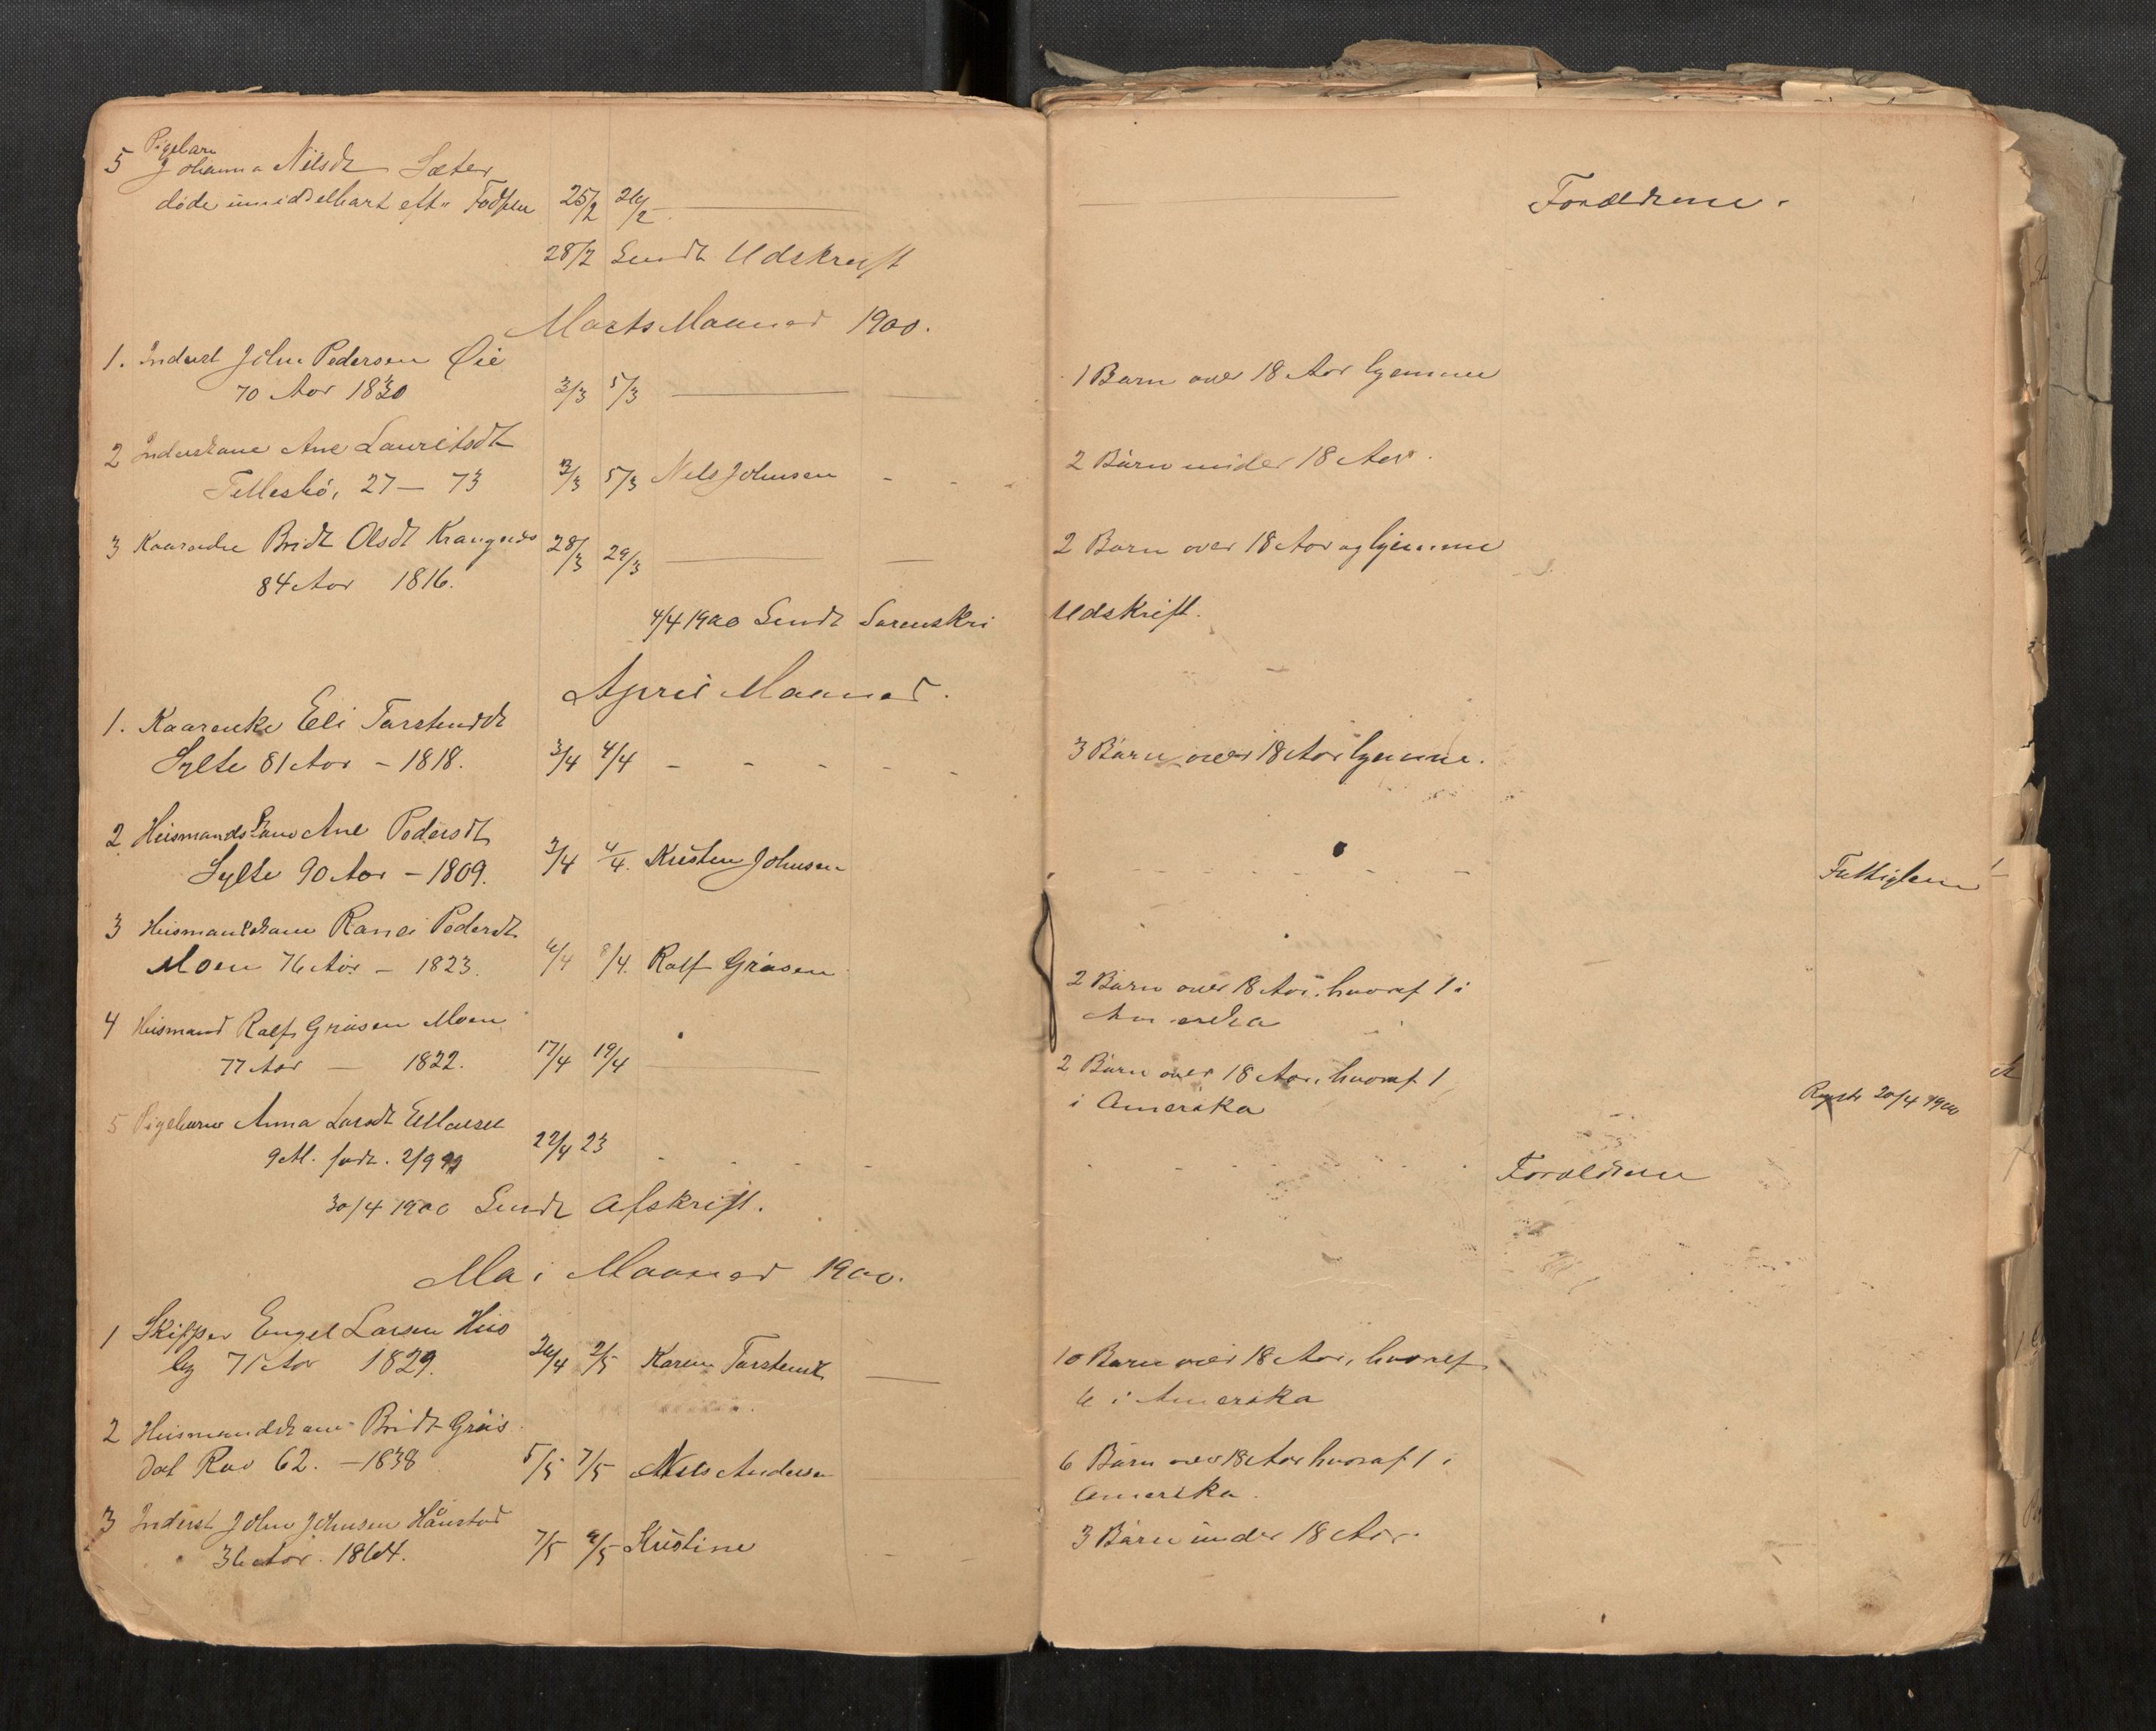 5 Pigebarn
Johanna Nilsdt Sæter
døde umiddelbart eft. Fødslen 25/2 26/2 Forældrene.
28/2 Sendt Udskrift
Marts Maaned 1900.
1. Inderst John Pedersen Øie
70 Aar 1830 3/3 5/3 1 Barn over 18 Aar hjemme
2 Inderstkone Ane Lauritsdt
27 — 73 3/3 5/3 Nils Johnsen 2 Børn under 18 Aar.
3 Kaarenke Bridt Olsdt 28/3 29/3 2 Børn over 18 Aar og hjemme
84 Aar 1816.
4/4 1900 Sendt Sorenskri Udskrift.
April Maaned.
1. Kaarenke Eli Tarstendt
Sylte 81 Aar – 1818. 3/4 4/4 3 Børn over 18 Aar hjemme.
2 Husmandskone Ane Pedersdt
Sylte 90 Aar – 1809. 3/4 4/4. Kristen Johnsen Fattiglem
3 Husmandskone Ranei Pedersdt
Moen 76 Aar – 1823. 6/4 8/4. Ralf Gråsen 2 Børn over 18 Aar, hvoraf 1 i
Amerika
4 Husmand Ralf Gråsen Moen
77 Aar — 1822. 17/4 19/4 2 Børn over 18 Aar, hvoraf 1
i Amerika Regstr 20/4 1900
5 Pigebarn Anna Larsdt
9 M. født. 2/9 99 22/4 23 Forældrene
30/4 1900 Sendt Afskrift.
Mai Maaned 1900.
1 Skipper Engel Larsen Hus
by 71 Aar 1829. 26/4 2/5 Karen Tarstendt 10 Børn over 18 Aar, hvoraf
6 i Amerika
2 Husmandskone Bridt Gräs
dat Rav 62. – 1838 5/5 7/5 Nils Andersen 6 Børn over 18 Aar hvoraf 1 i
Amerika.
3 Inderst John Johnsen Hånstad
36 Aar. 1864. 7/5 9/5 Kristine 3 Børn under 18 Aar.